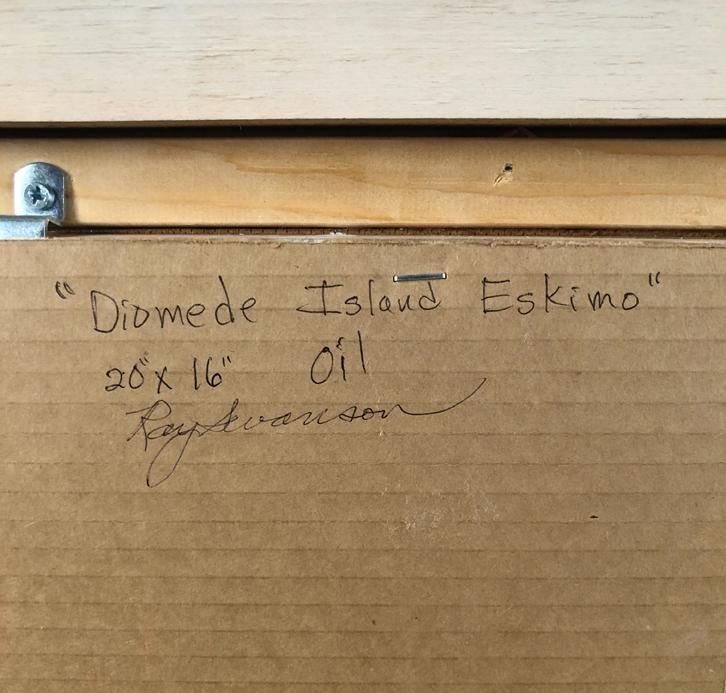 "Diomede Island Eskimo"
20" x 16" Oil
Ray Swanson